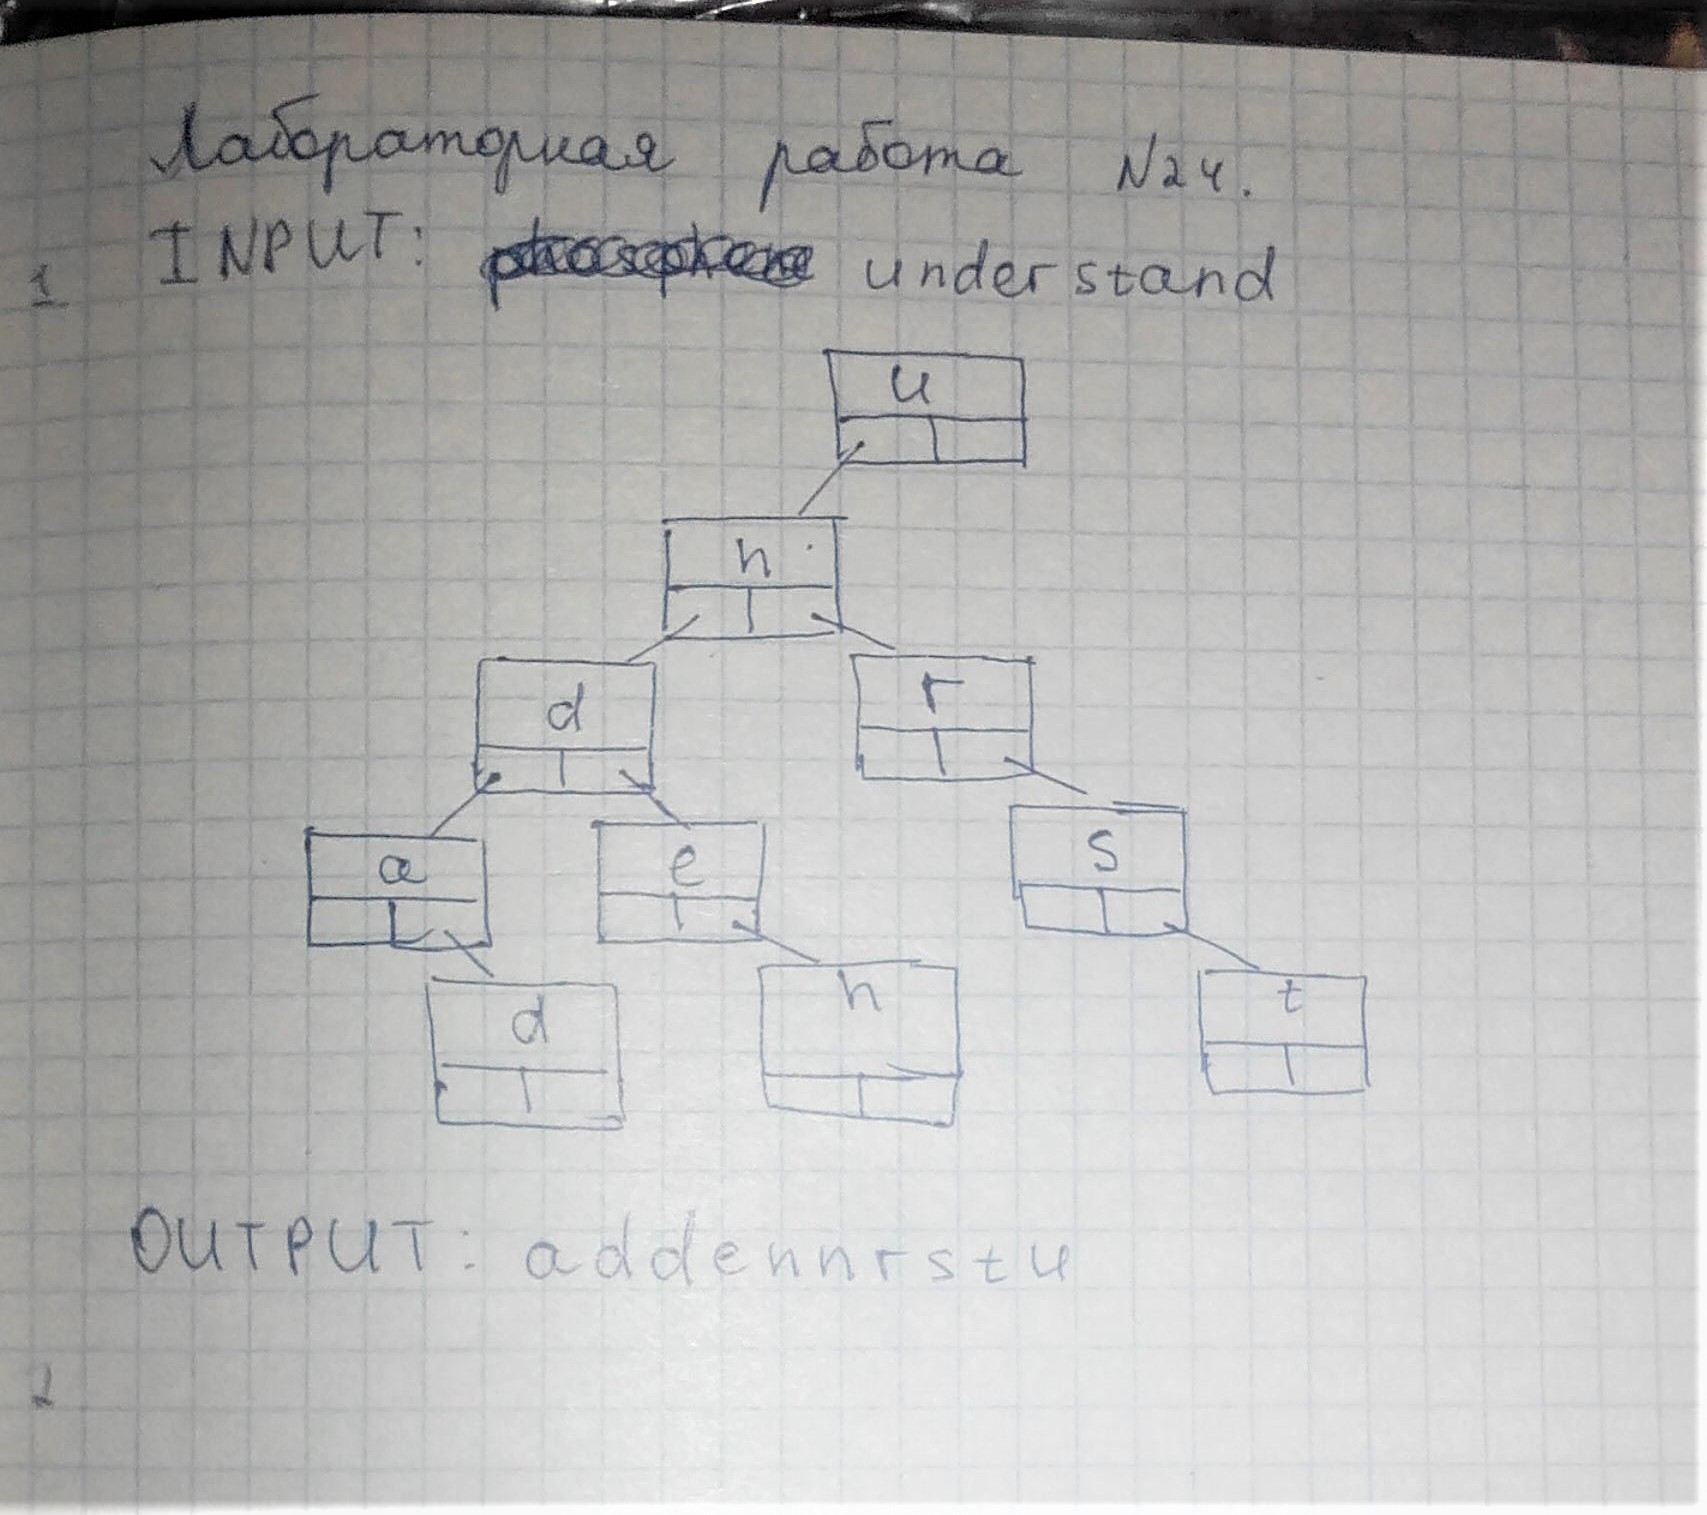 Лабораторная работа N24.
1 INPUT: understand
u
n
d r
a e s
d n t
OUTPUT: addennrstu
2